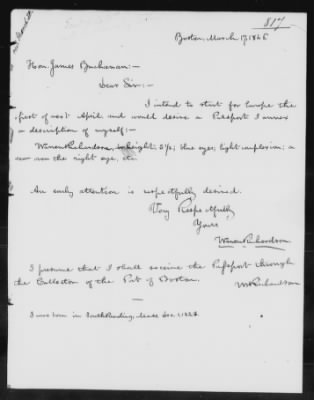 817
Boston, March 17, 1846
Hon. James Buchanan:-
Dear Sir:-
I intend to start for Europe the
first of next April and would desire a Passport I annex
a description of myself:-
Warren Richardson, height, 5/8; blue eyes; light complexion; a
scar over the right eye, etc.
An early attention is respectfully desired.
Very Respectfully
Yours
Warren Richardson
I presume that I shall receive the Passport through
the Collector of the Port of Boston.
W Richardson
I was born in South Reading, Mass